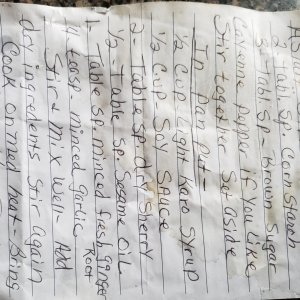 2 Tabl sp. Corn Starch
3- Tabl Sp- Brown Sugar
Cahenne pepper If you Like
Stir together Set aside
In pan put-
1/2 Cup Light Karo Syrup
1/2 Cup Soy Sauce
2- Table Sp dry Sherry
1/2 - Table Sp. Sesame Oil
1. Table sp. minced fresh ganger Root
1/4 teasp. minced garlic
Stir & mix Well - Add
dry ingredients Stir again
Cook on med heat - Bring